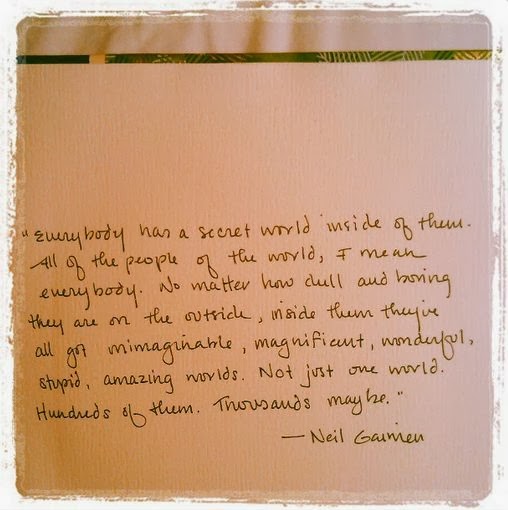 "Everybody has a secret world inside of them.
All of the people of the world, I mean
everybody. No matter how dull and boring
they are on the outside, inside them they've
all got unimaginable, magnificent, wonderful,
stupid, amazing worlds. Not just one world.
Hundreds of them. Thousands maybe."
— Neil Gaiman